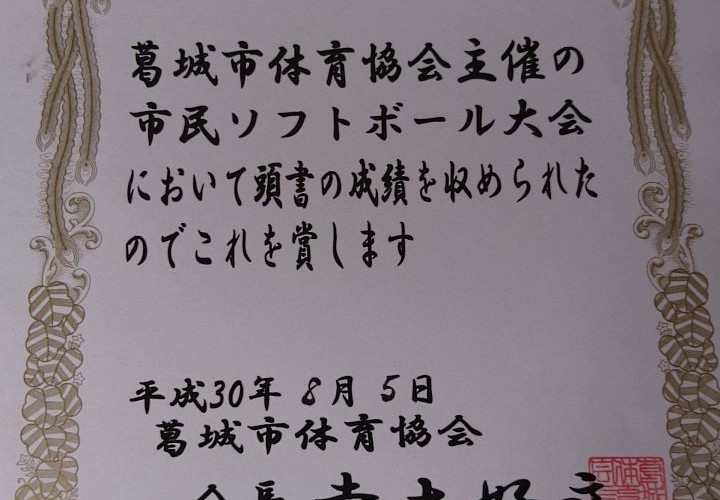 葛城市体育協会主催の
市民ソフトボール大会
において頭書の成績を収められた
のでこれを賞します
平成30年 8月 5日
葛城市体育協会
会長